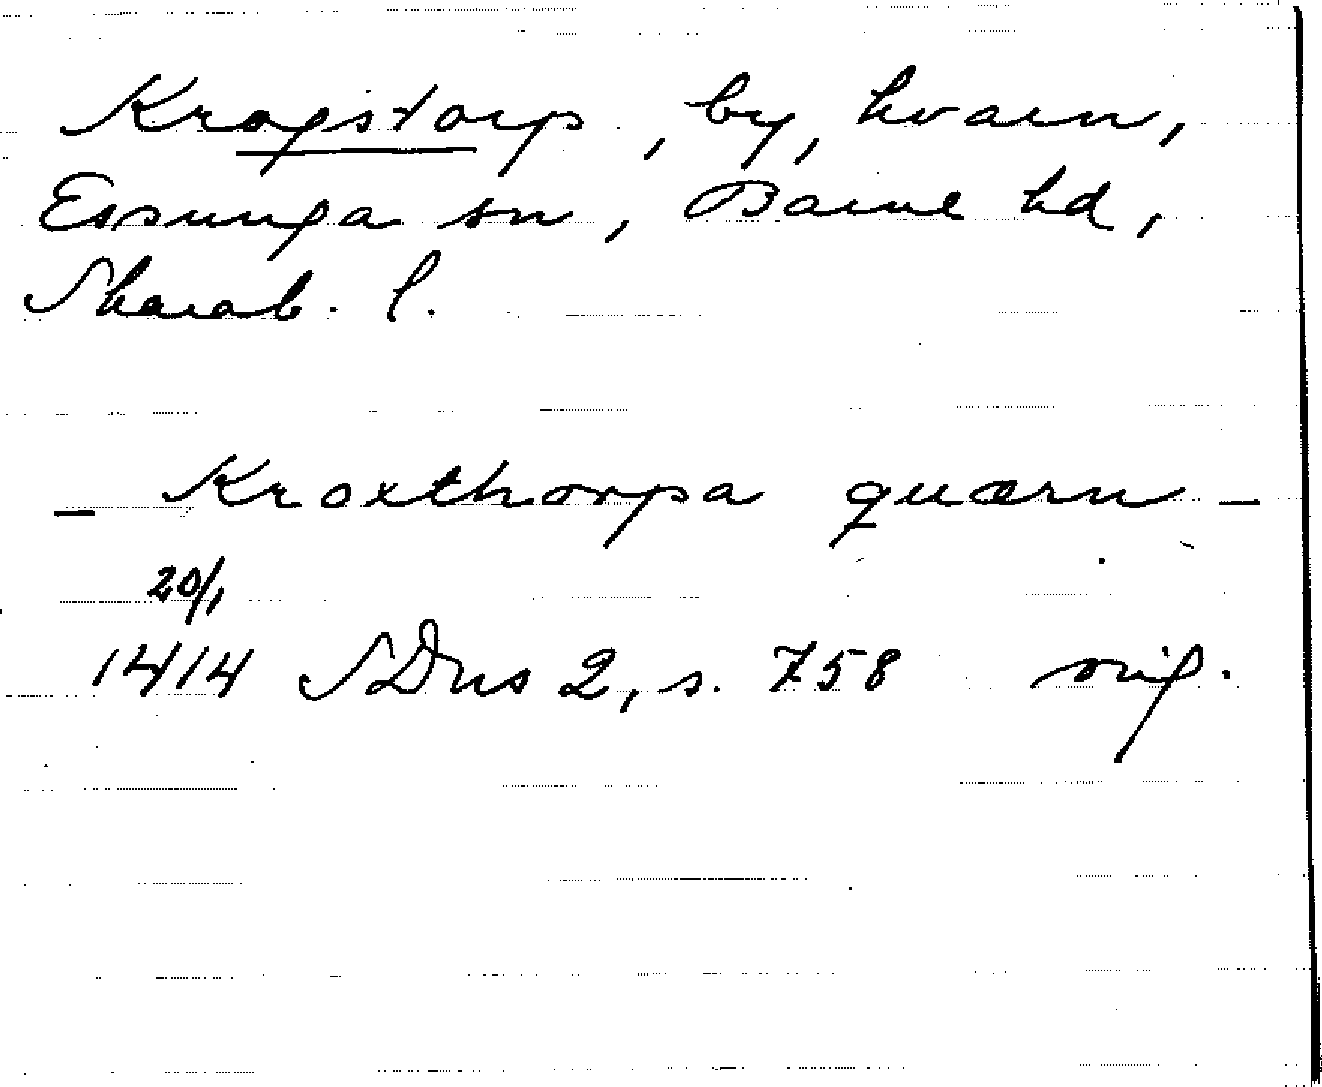 Krogstorp, by, kvarn,
Essunga sn, Barne hd,
Skarab. l.
- Kroxthorpa quærn -
20/1
1414 SDns 2, s. 758 orig.